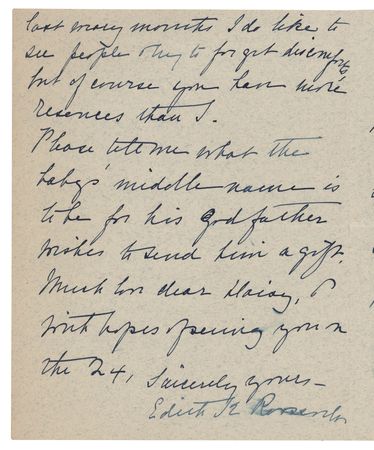 last many months I do like to
see people only to forget discomforts,
but of course you have more
resources than I.
Please tell me what the
baby's middle name is
to be for his Godfather
wishes to send him a gift.
Much love dear Daisy, &
with hopes of seeing you on
the 24,
Sincerely yours –
Edith K Roosevelt